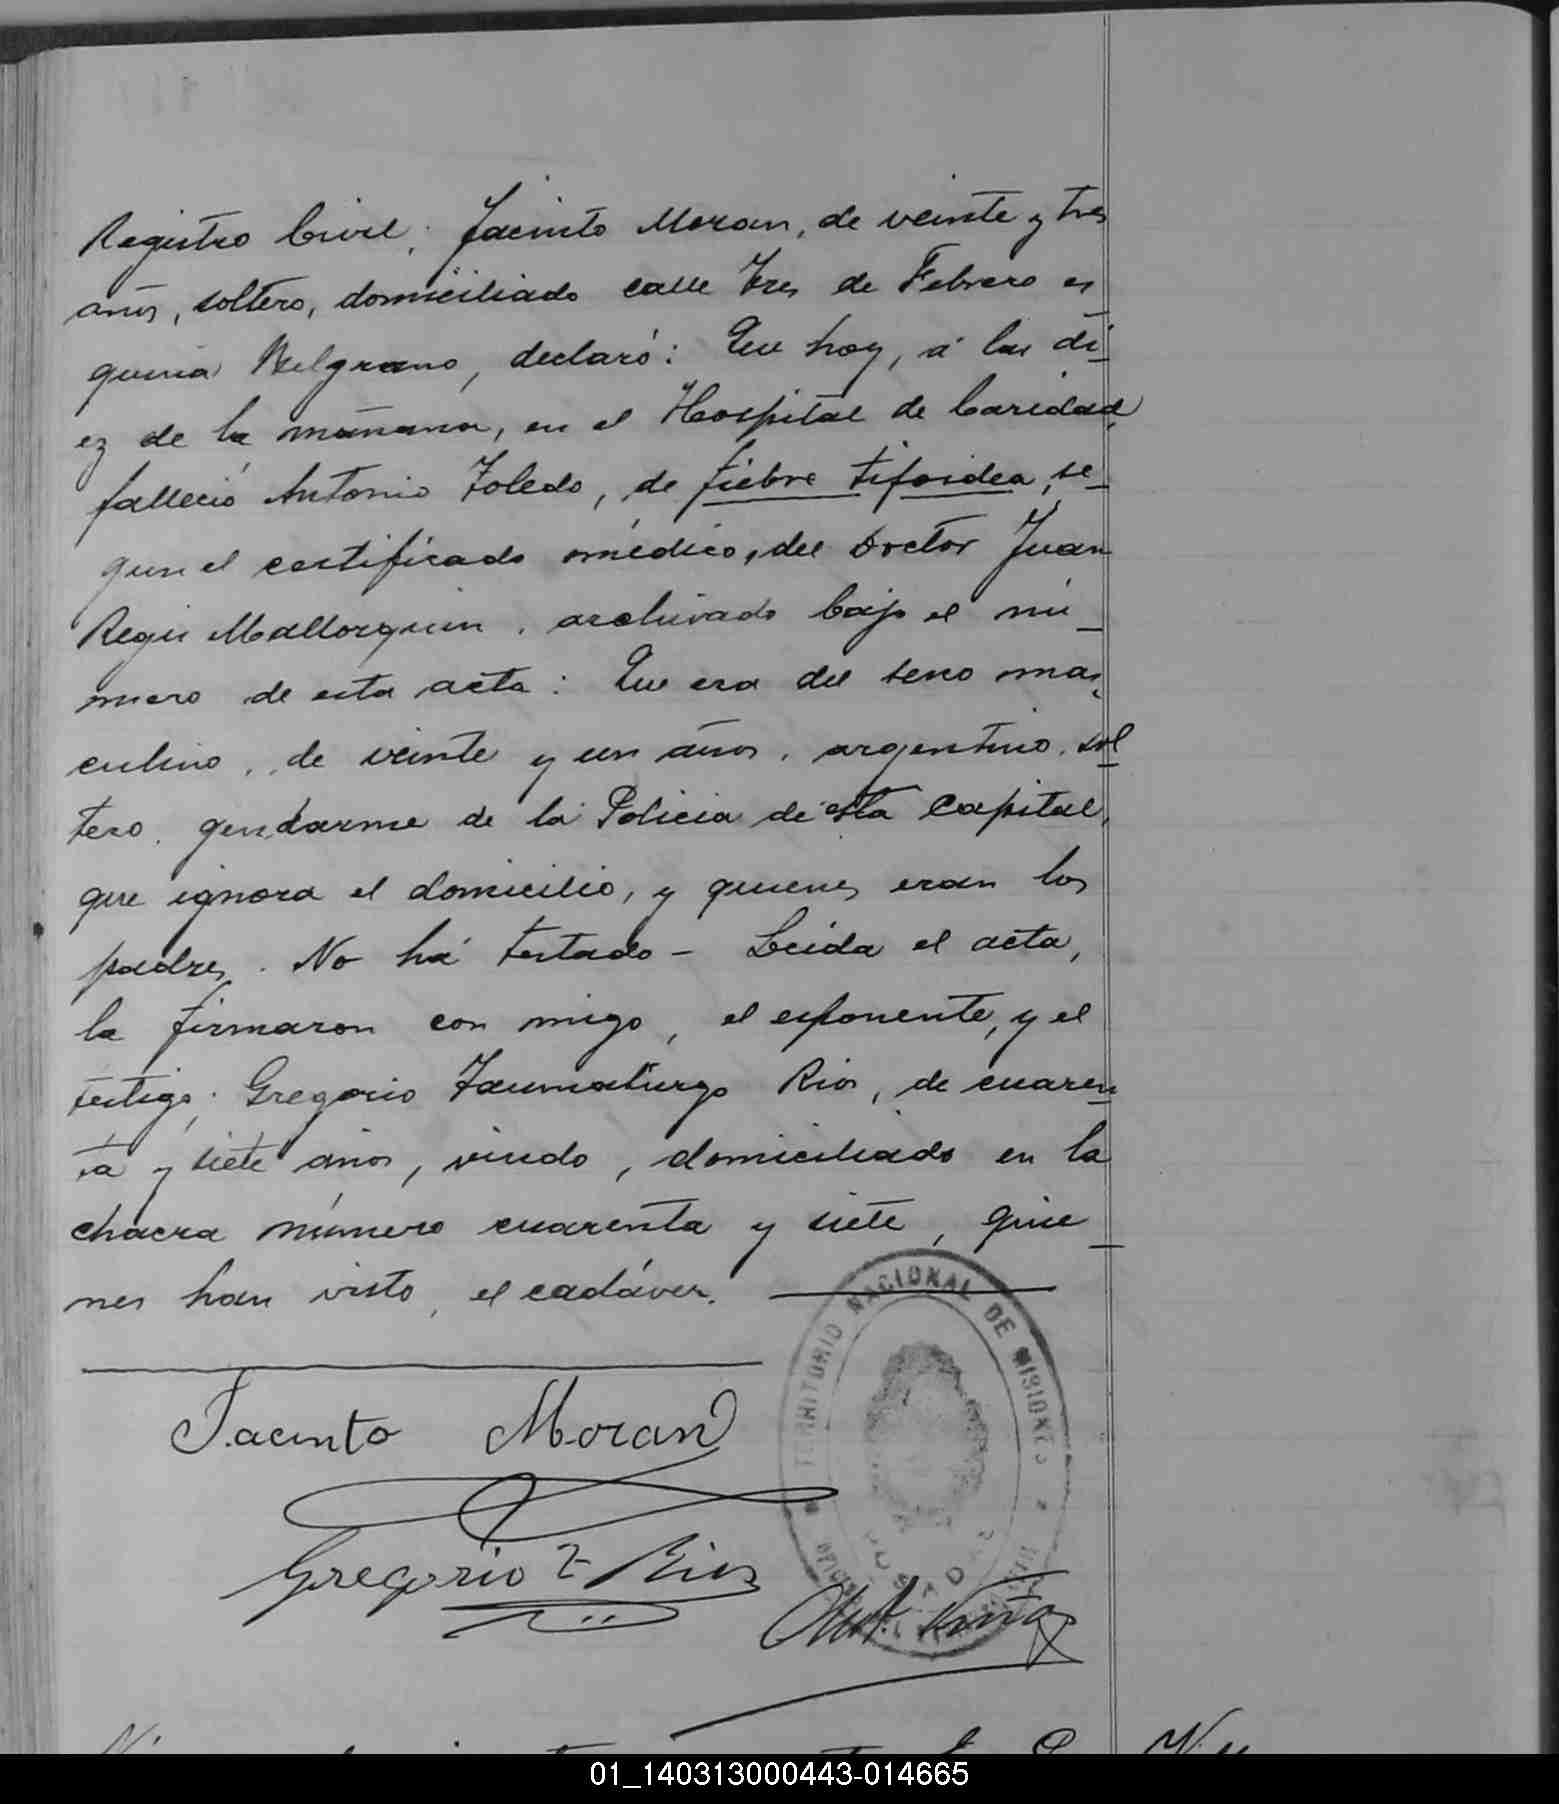 Registro Civil; Jacinto Moran, de veinte y tres
años, soltero, domiciliado calle Tres de Febrero es
quina Belgrano, declaró: Que hoy, á las di_
ez de la mañana, en el Hospital de Caridad,
falleció Antonio Toledo, de fiebre tifoidea, se_
gun el certificado médico, del Doctor Juan
Regis Mallorquin, archivado bajo el nú_
mero de esta acta: Que era del sexo mas_
culino, de veinte y un años, argentino, sol_
tero, gendarme de la Policia de esta Capital,
que ignora el domicilio, y quienes eran los
padres. No há testado - Leida el acta,
la firmaron con migo, el exponente, y el
testigo; Gregorio Taumaturgo Rios, de cuaren_
ta y siete años, viudo, domiciliado en la
chacra número cuarenta y siete, quie_
nes han visto, el cadáver.
Jacinto Moran
Gregorio T Rios
TERRITORIO NACIONAL DE MISIONES
POSADAS
01_140313000443-014665